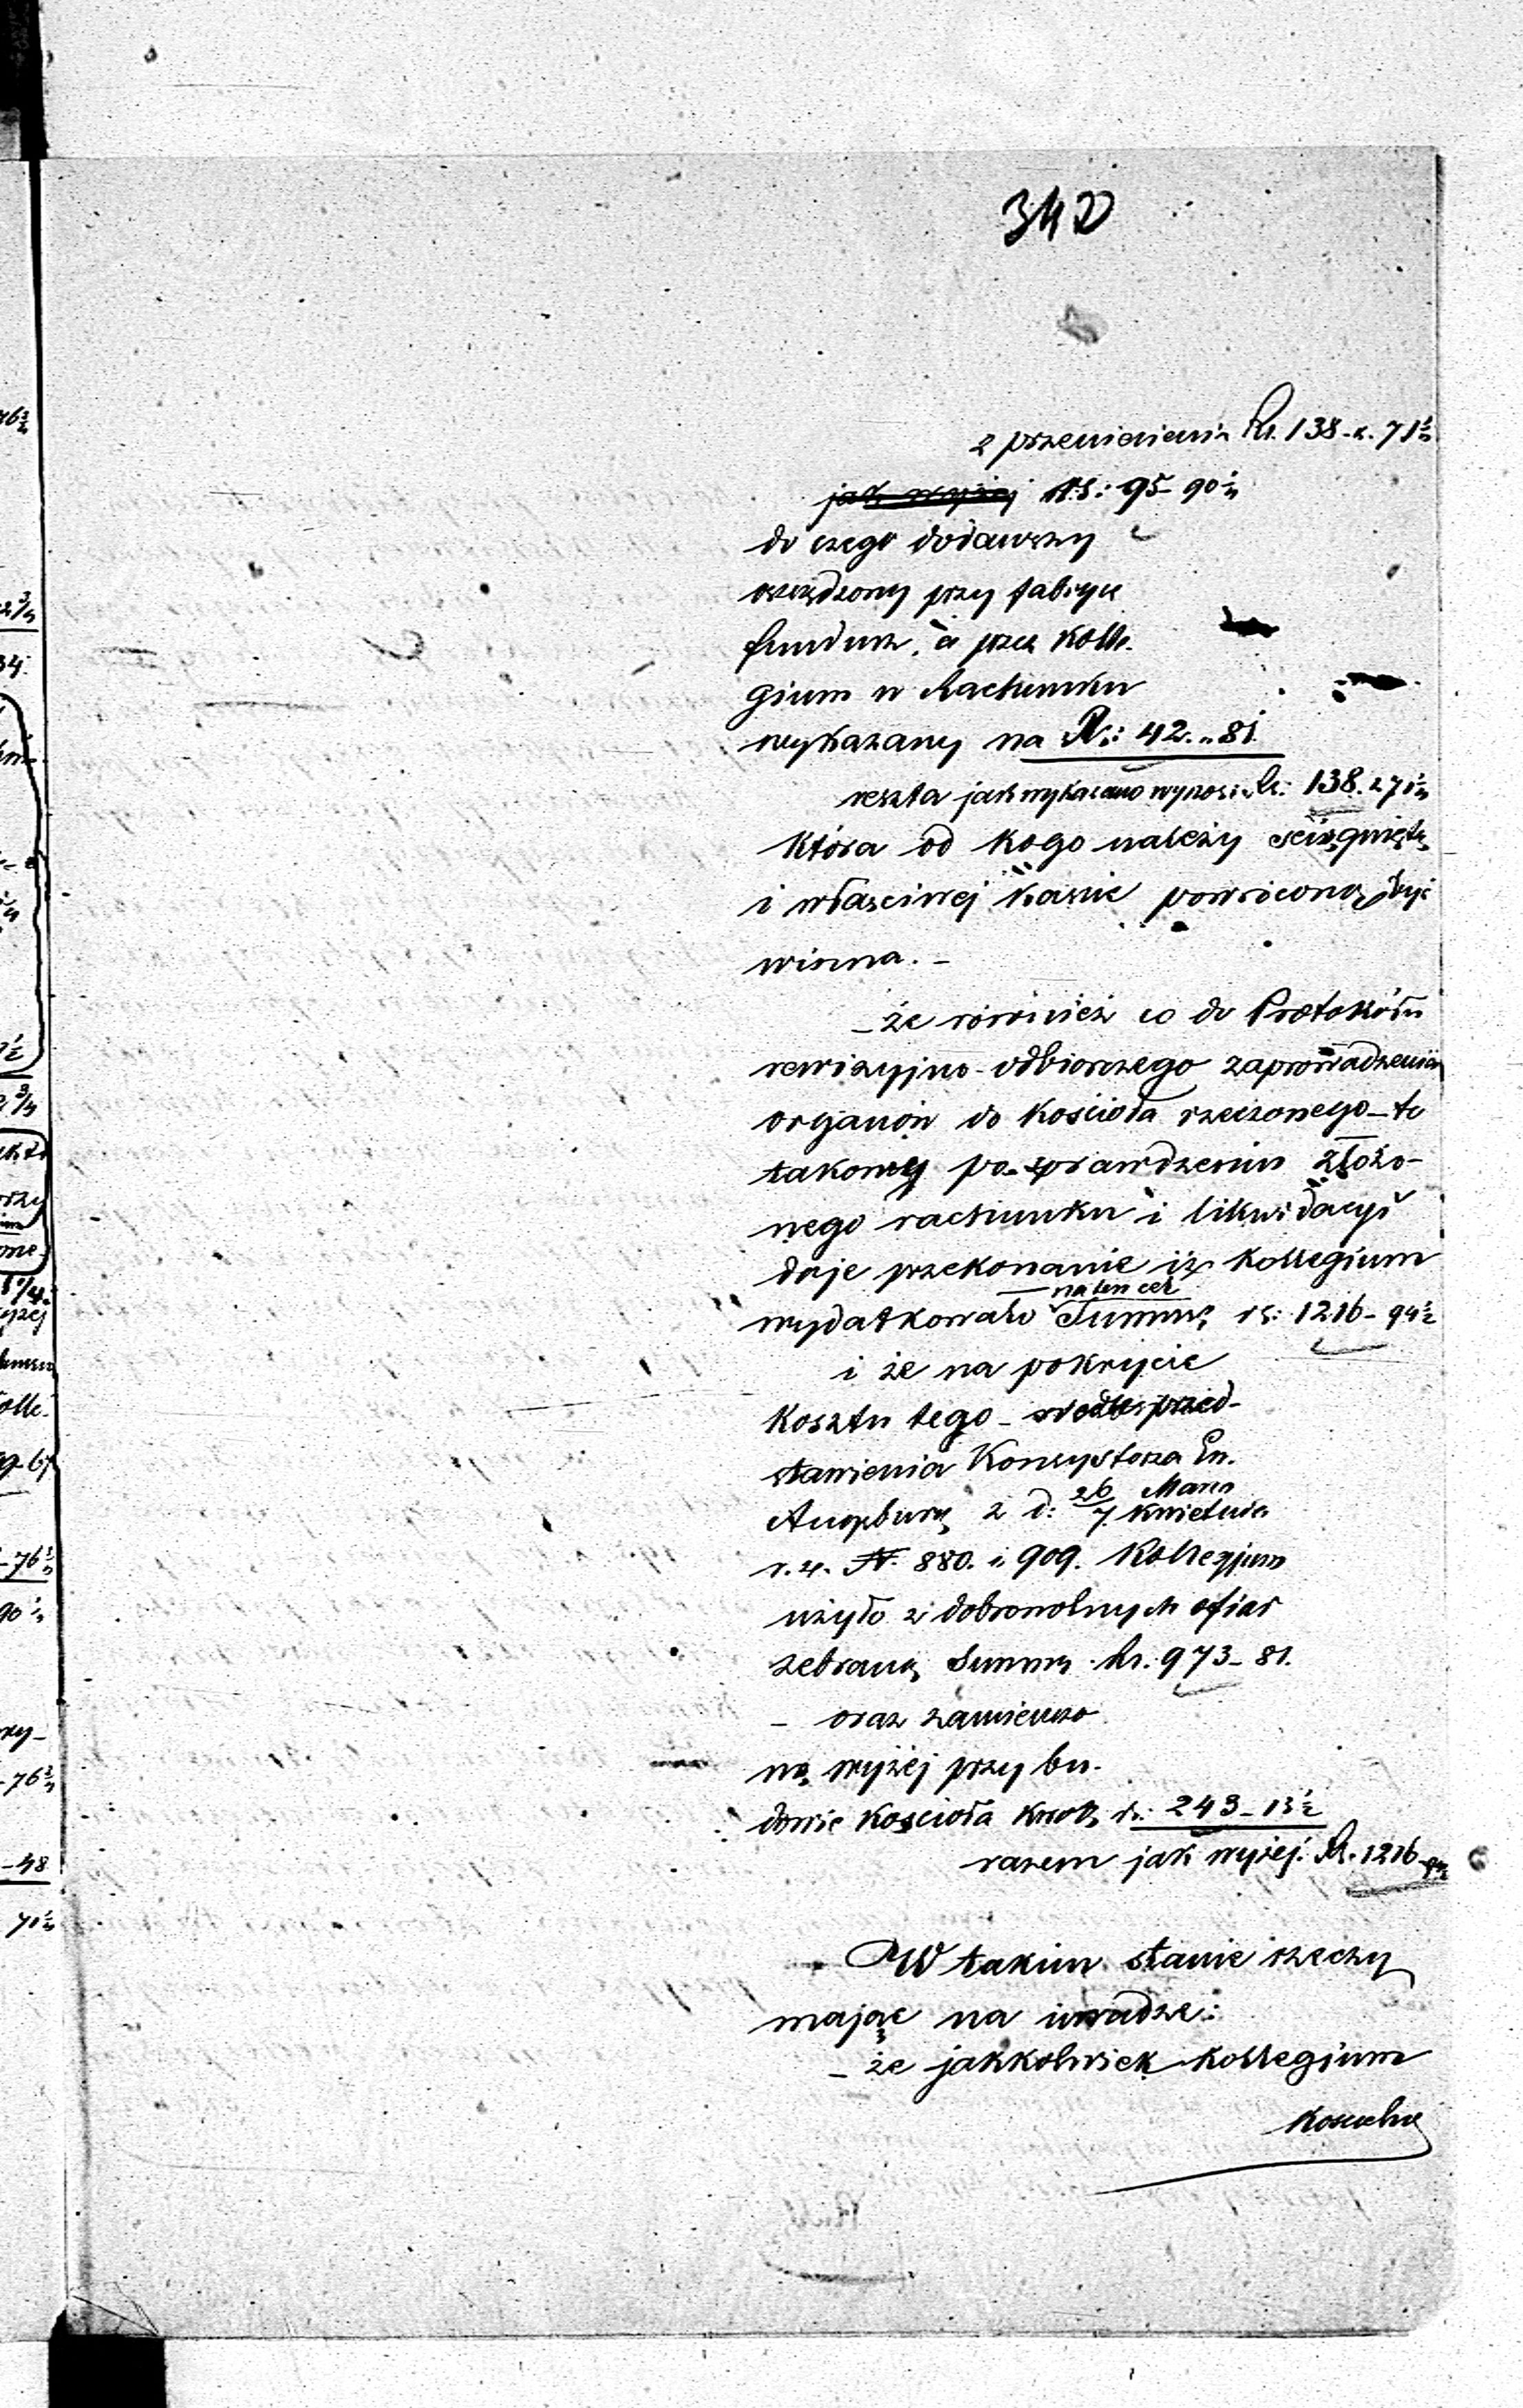 340
z przeniesienia Rs. 138 k. 71½
jak wyżej rs: 95 90½
do czego dodawszy
oszczędzony przy fabryce
fundusz, a przez Kolle-
gium w Rachunku
wykazany na Rs: 42 „ 81
reszta jak wykazano wynosi Rs: 138. 71½
która od kogo należy ściągniętą
i właściwej kassie powróconą być
winna. –
– że również co do Protokółu
rewizyjno-odbiorczego zaprowadzenia
organów do kościoła rzeczonego – to
takowy po sprawdzeniu złożo-
nego rachunku i likwidacyi
daje przekonanie iż Kollegium
na ten cel
wydatkowało Summę rs: 1216 – 94½
i że na pokrycie
kosztu tego – wedle przed-
stawienia Konsystorza Ew.
Augsburg z d: 26 Marca / 7 Kwietnia
r. z. N. 880. i 909. Kollegium
użyło z dobrowolnych ofiar
zebraną Summę Rs. 973 – 81.
– oraz zamieszczo
ną wyżej przy bu-
dowie kościoła kwotę rs: 243 – 13½
razem jak wyżej Rs. 1216 – 94½
W takim stanie rzeczy
mając na uwadze:
– że jakkolwiek Kollegium
Kościelne